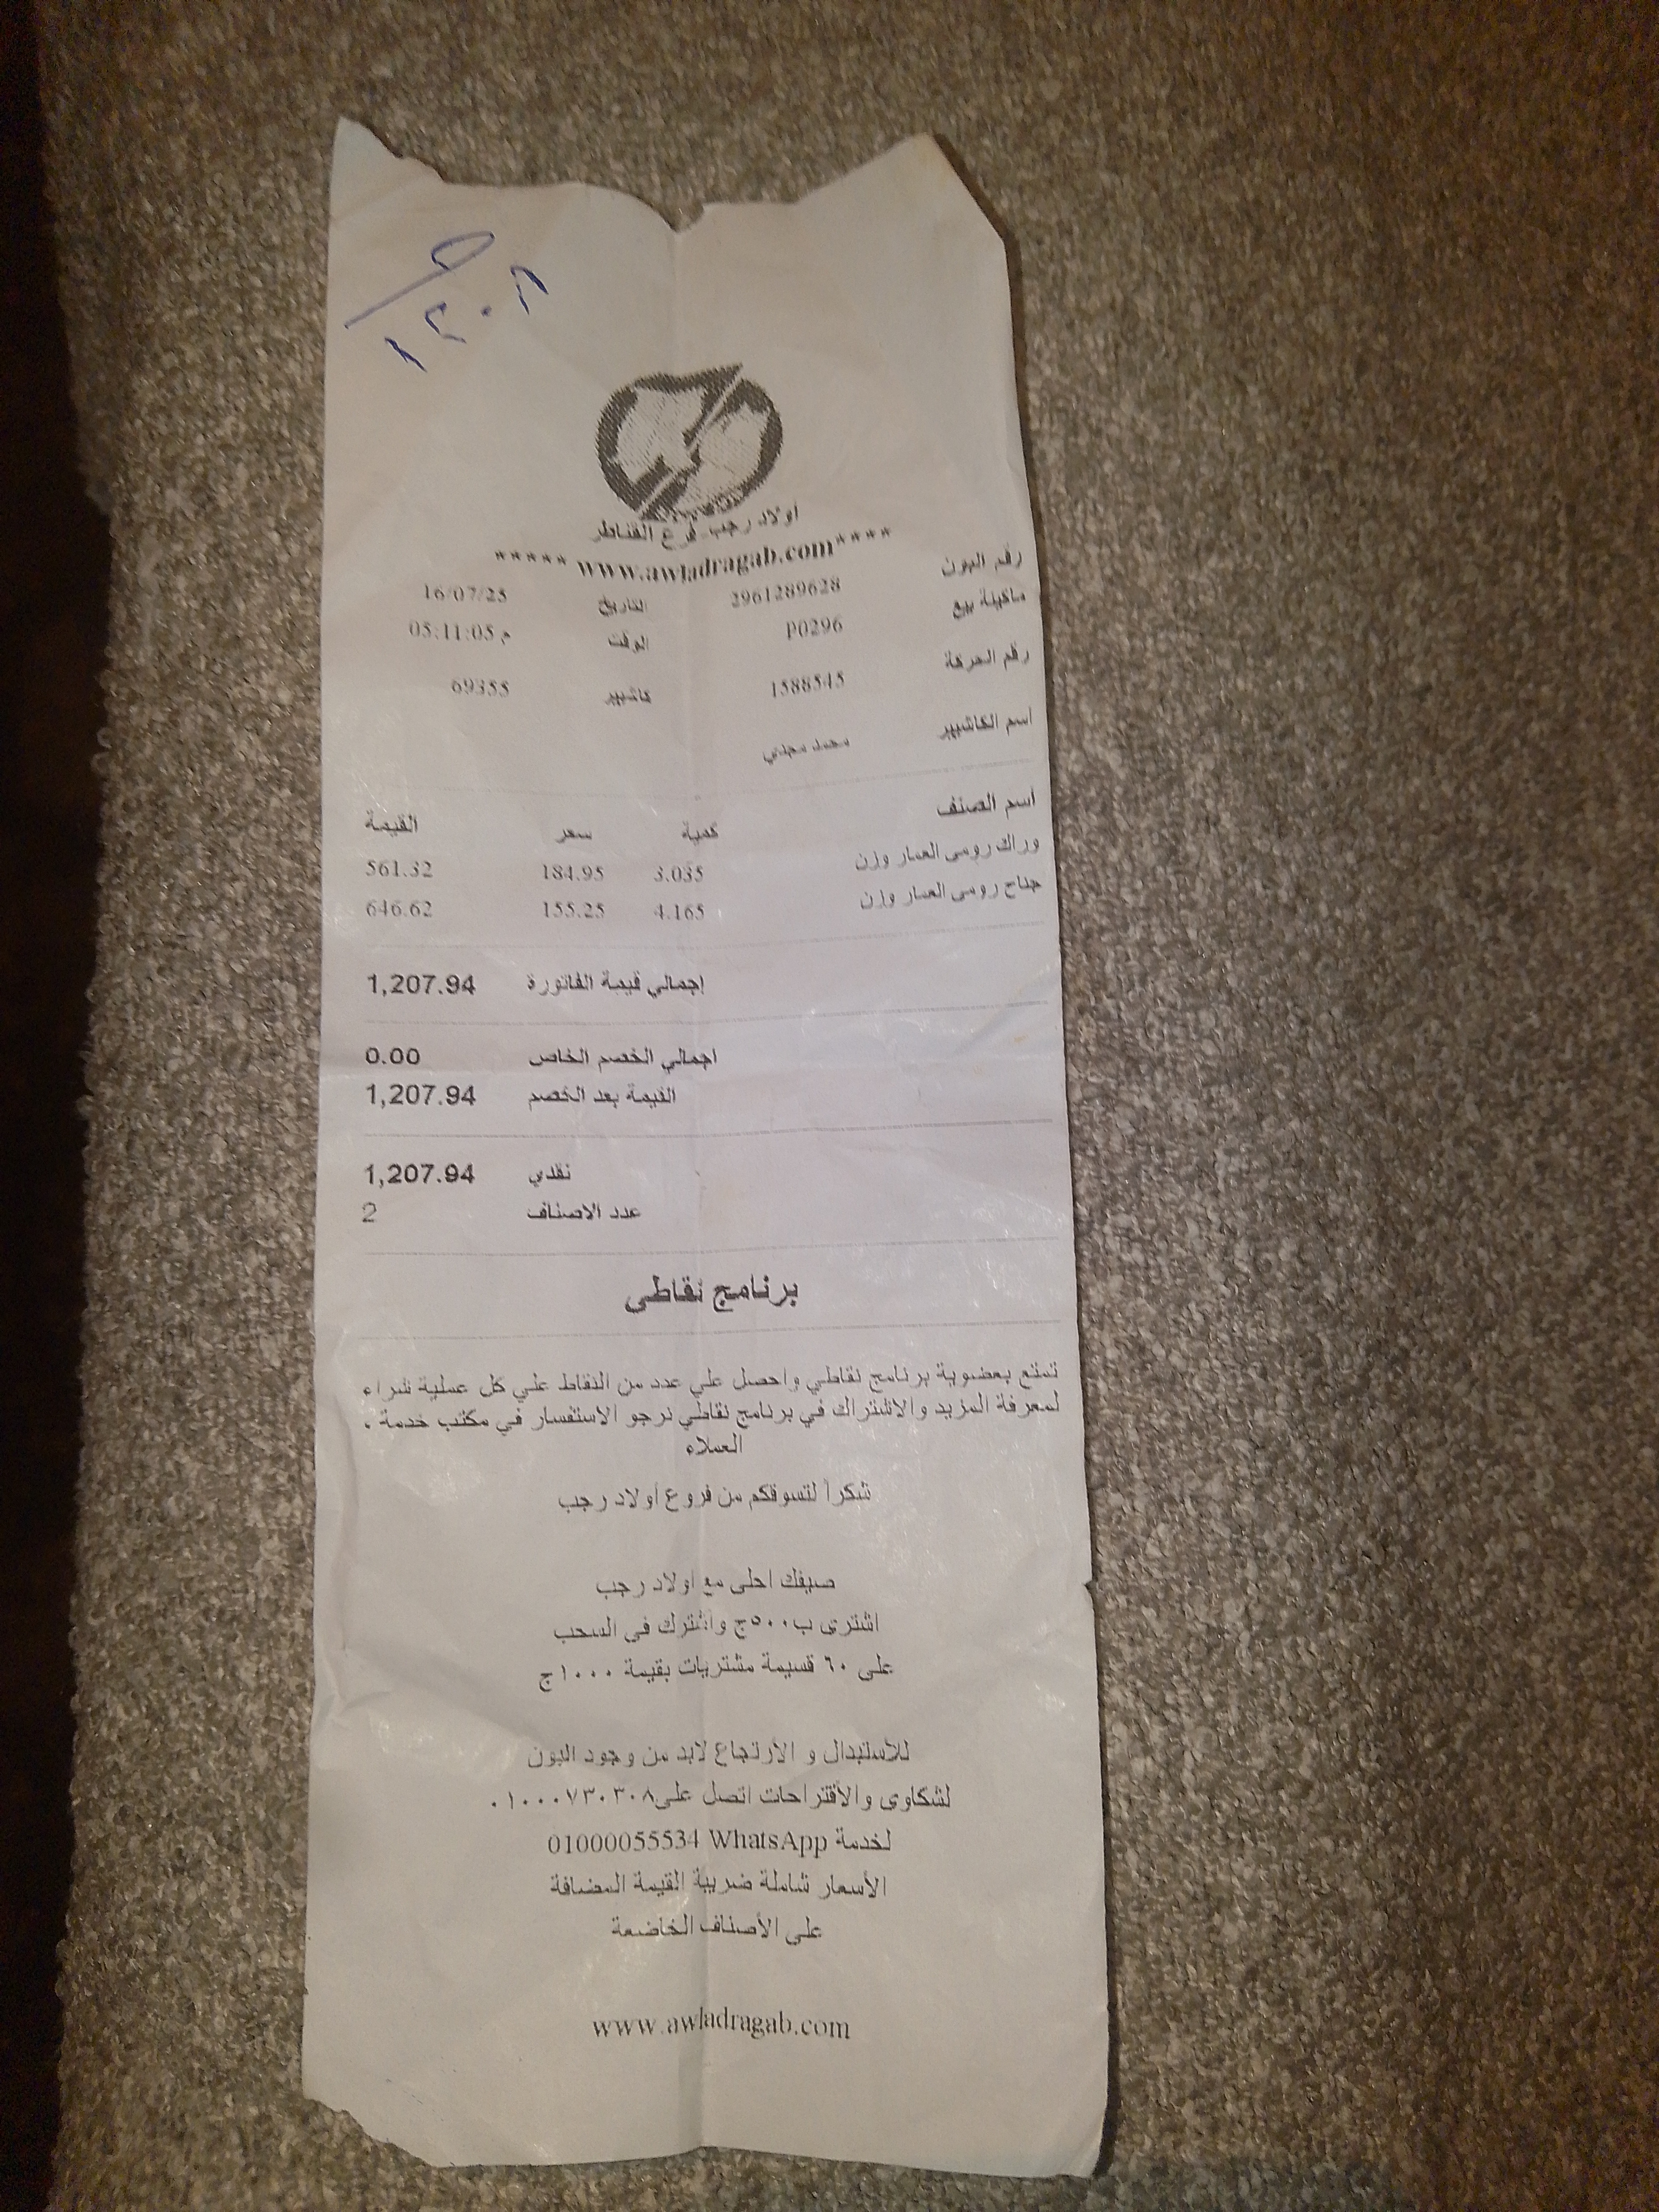 ١٢٠٨
اولاد رجب فرع القناطر
***** www.awladragab.com****
رقم البون 2961289628 التاريخ 16/07/25
ماكينة بيع P0296 الوقت 05:11:05 م
رقم الحركة 1588545 كاشيير 69355
أسم الكاشيير محمد مجدي
أسم الصنف كمية سعر القيمة
وراك رومى العمار وزن 3.035 184.95 561.32
جناح رومى العمار وزن 4.165 155.25 646.62
إجمالي قيمة الفاتورة 1,207.94
اجمالي الخصم الخاص 0.00
القيمة بعد الخصم 1,207.94
نقدي 1,207.94
عدد الاصناف 2
برنامج نقاطي
تمتع بعضوية برنامج نقاطي واحصل علي عدد من النقاط علي كل عملية شراء
لمعرفة المزيد والاشتراك في برنامج نقاطي نرجو الاستفسار في مكتب خدمة .
العملاء
شكرا لتسوقكم من فروع اولاد رجب
صيفك احلى مع اولاد رجب
اشترى ب٥٠٠ج واشترك فى السحب
على ٦٠ قسيمة مشتريات بقيمة ١٠٠٠ج
للأستبدال و الأرتجاع لابد من وجود البون
لشكاوى والأقتراحات اتصل على٠١٠٠٠٧٣٠٣٠٨
لخدمة WhatsApp 01000055534
الأسعار شاملة ضريبة القيمة المضافة
على الأصناف الخاضعة
www.awladragab.com